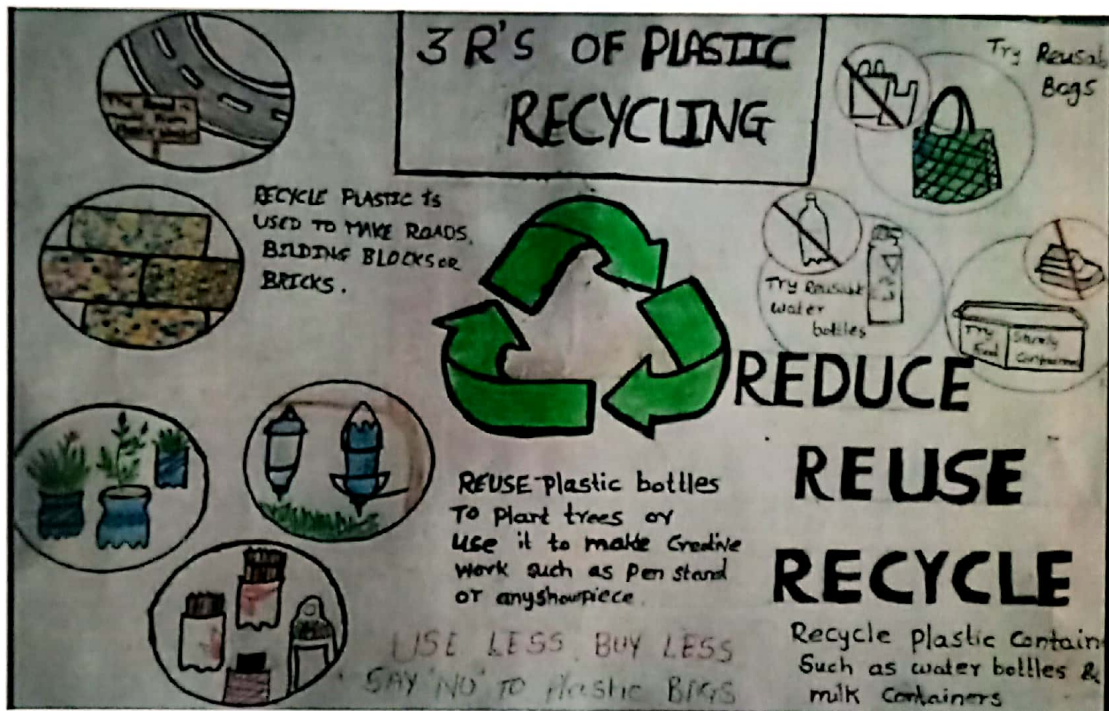 3 R'S OF PLASTIC
RECYCLING
Try Reusab
Bags
This Road is
made from
Plastic Waste
RECYCLE PLASTIC is
USED TO MAKE ROADS,
BILDING BLOCKS OR
BRICKS.
Try Reusable
water
bottles
Try
Sturdy
Container
REDUCE
REUSE
RECYCLE
REUSE plastic bottles
To plant trees or
use it to make Creative
work such as pen stand
or any showpiece.
USE LESS BUY LESS
SAY 'NO' TO Plastic BAGS
Recycle plastic Contain
Such as water bottles &
milk Containers